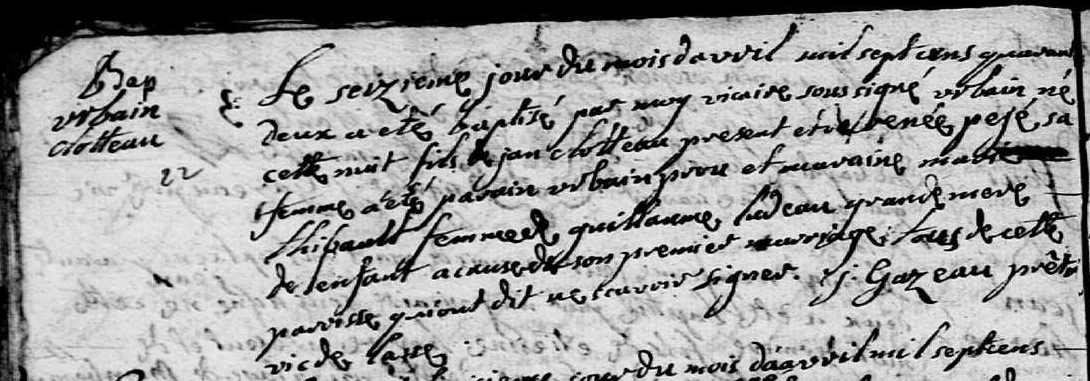 Bap
urbain
clotteau
22
Le seizieme jour du mois davril mil septcens quarante
deux a eté baptisé par moy vicaire soussigné urbain né
cette nuit fils de jan clotteau present et de renée pejé sa
femme a eté parain urbain prou et maraine marie
thibault femme de guillaume ludeau grande mere
de lenfant a cause de son premier mariage tous de cette
paroisse qui ont dit ne scavoir signer. j. Gazeau prêtre
vic de
jour du mois daavril mil septcens